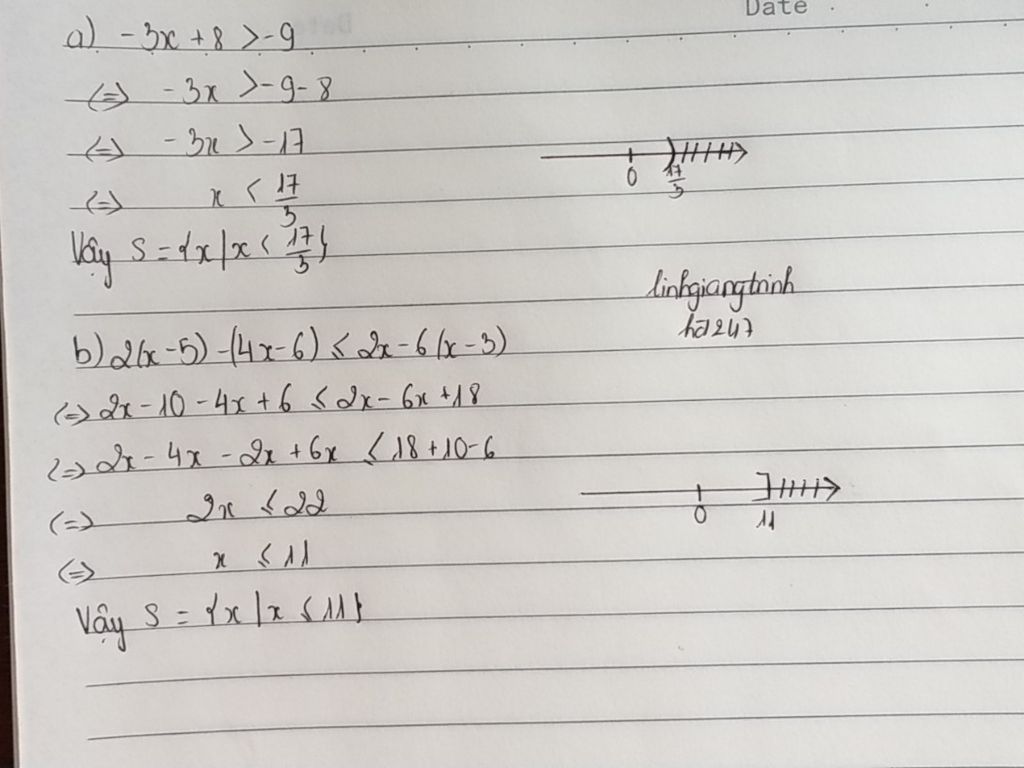 Date
a) -3x + 8 > -9
<=> -3x > -9 - 8
<=> -3x > -17
<=> x < 17/3
0 17/3
Vậy S = {x | x < 17/3}
linhgiangtrinh
hd247
b) 2(x - 5) - (4x - 6) ≤ 2x - 6(x - 3)
<=> 2x - 10 - 4x + 6 ≤ 2x - 6x + 18
<=> 2x - 4x - 2x + 6x ≤ 18 + 10 - 6
<=> 2x ≤ 22
0 11
<=> x ≤ 11
Vậy S = {x | x ≤ 11}